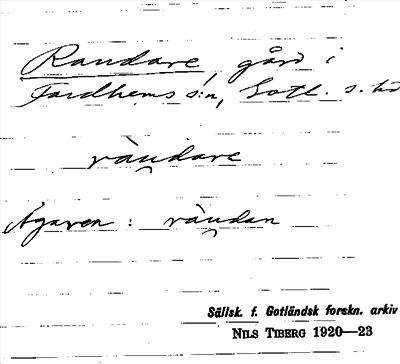 Randare, gård i
Fardhems s:n, Gotl. s. hd
ràu̯dare
Ägaren : ràu̯dan
Sällsk. f. Gotländsk forskn. arkiv
NILS TIBERG 1920—23